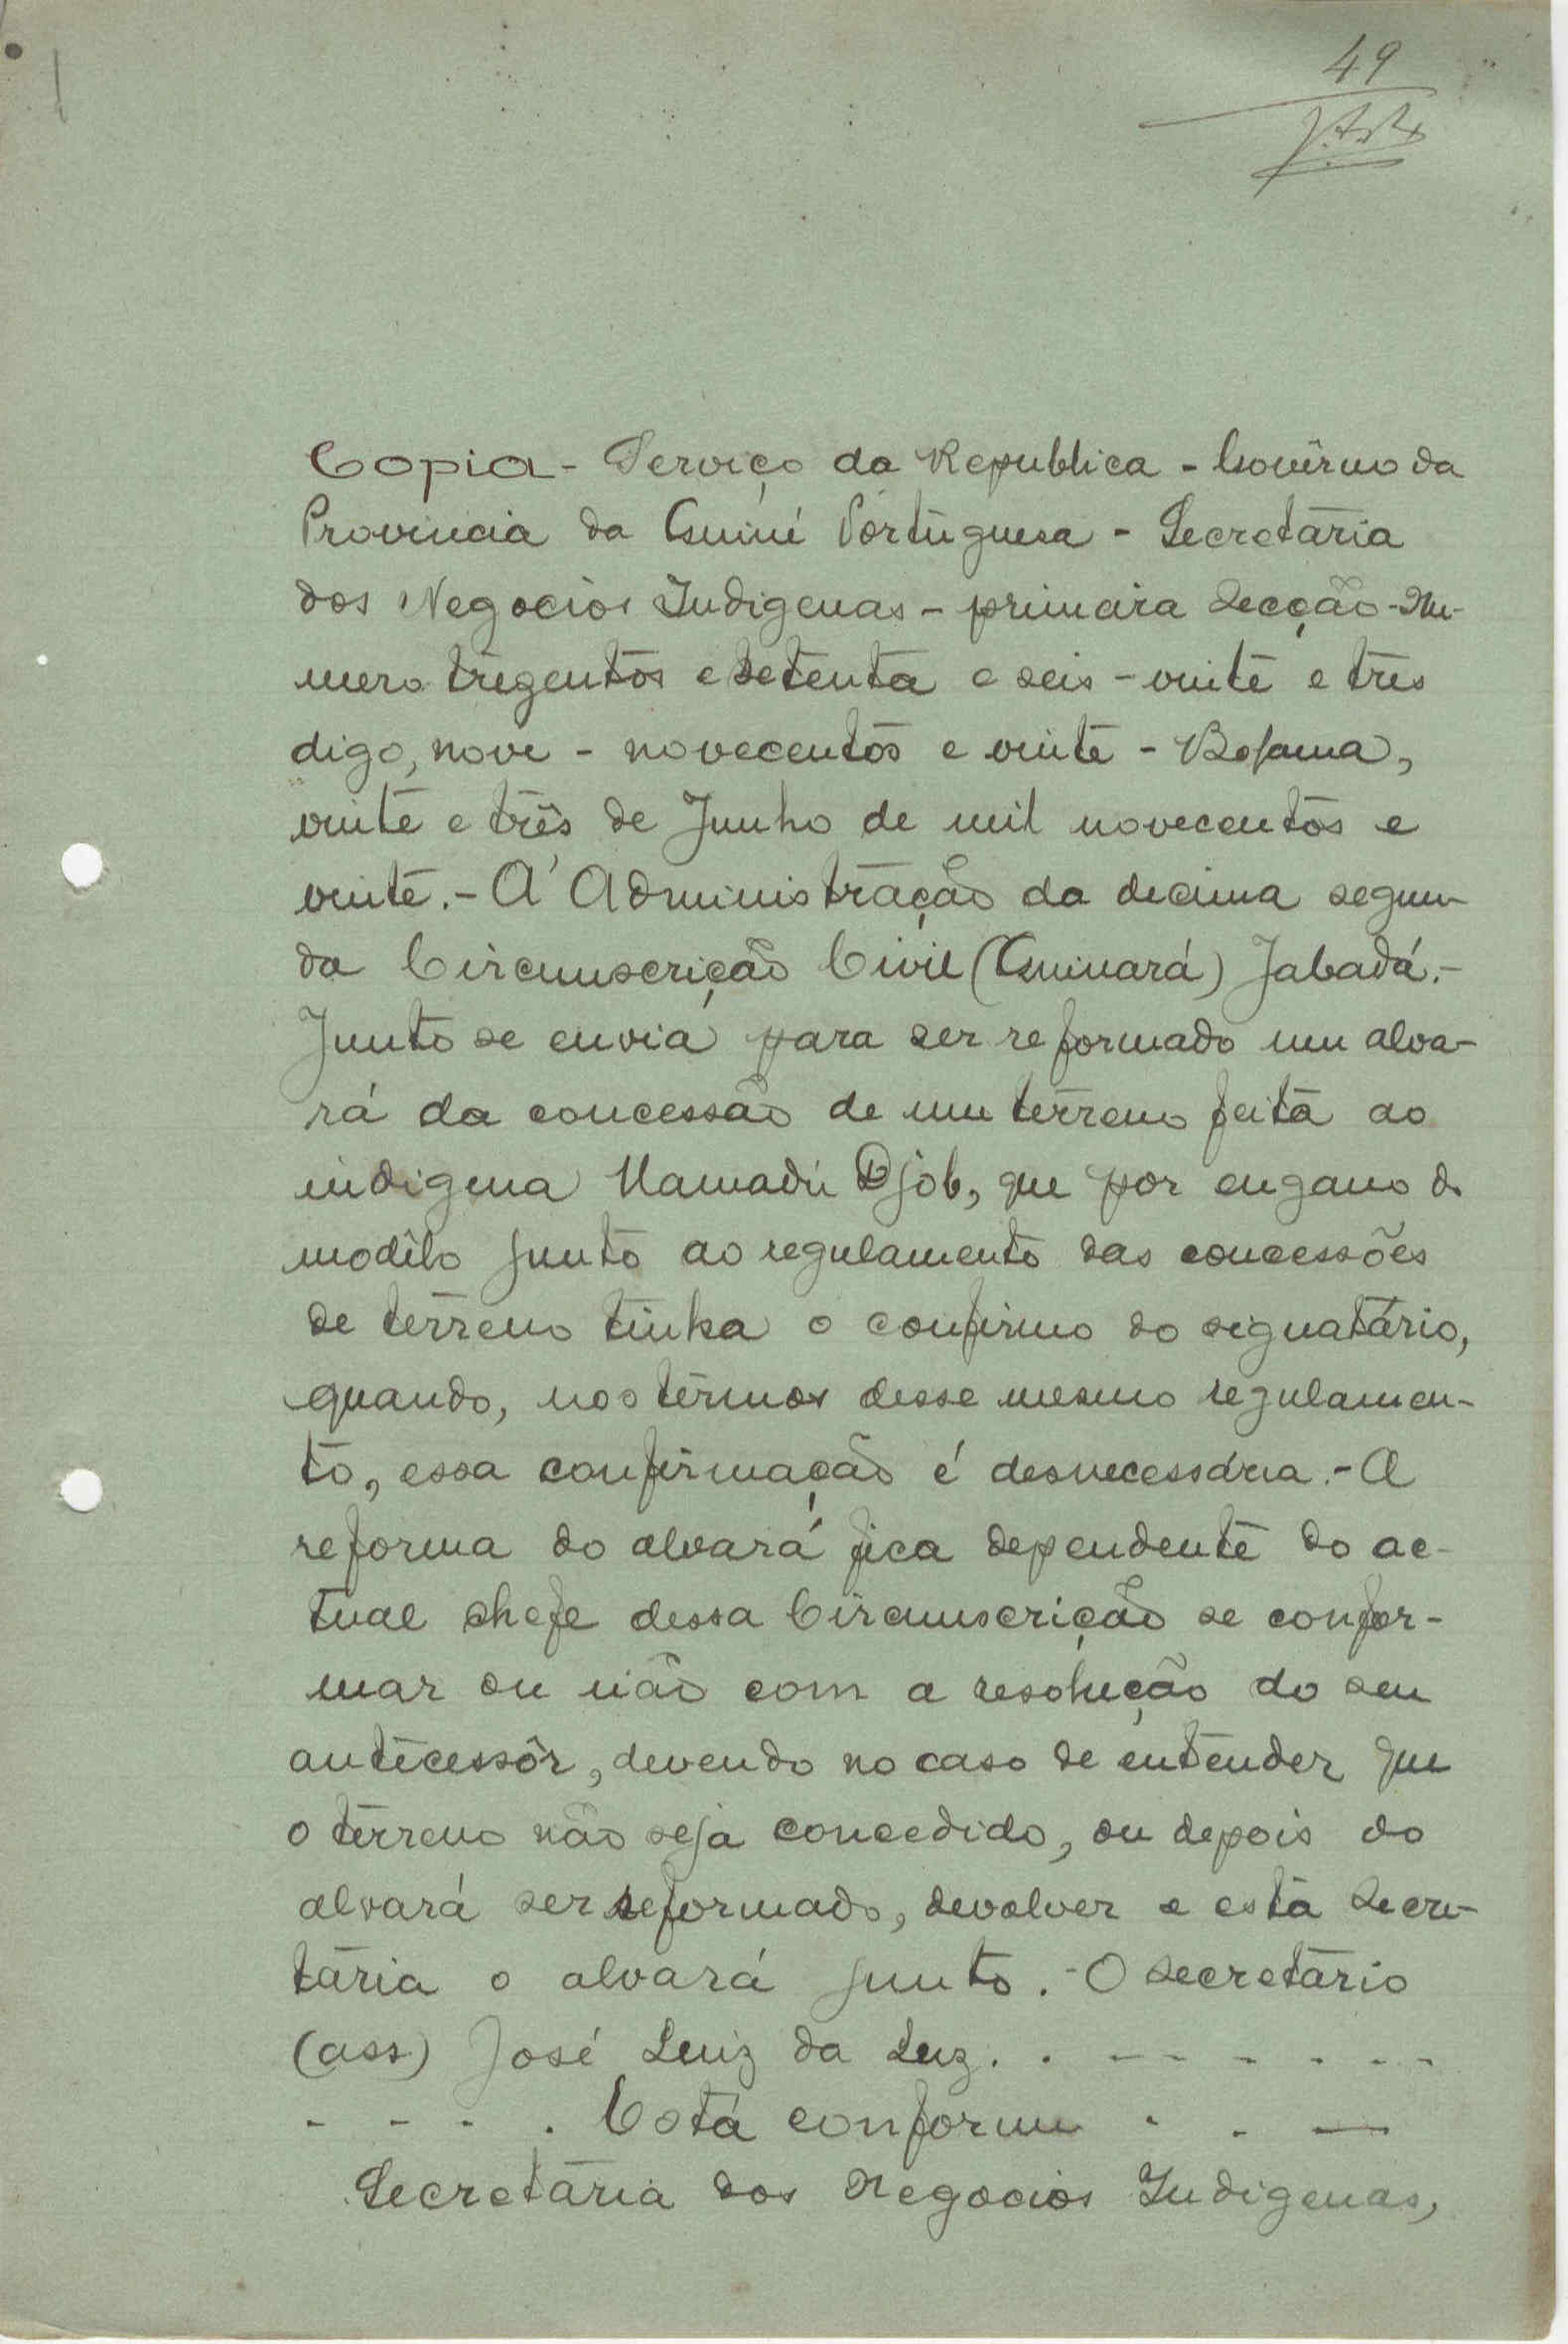 49
Copia - Serviço da Republica - Govêrno da
Provincia da Guiné Portuguesa - Secretaria
dos Negocios Indigenas - primeira Secção - Nu-
mero tregentos e setenta e seis - vinte e três
digo, nove - novecentos e vinte - Bolama,
vinte e três de Junho de mil novecentos e
vinte. - Á Administração da decima segun-
da Circunscrição Civil (Guinará) Jabadá. -
Junto se envia para ser reformado um alva-
rá da concessão de um terreno feita ao
indigena Mamadú Djob, que por engano do
modêlo junto ao regulamento das concessões
de terreno tinha o confirmo do signatário,
quando, nos têrmos desse mesmo regulamen-
to, essa confirmação é desnecessária. - A
reforma do alvará fica dependente do ac-
tual chefe dessa Circunscrição se confor-
mar ou não com a resolução do seu
antecessôr, devendo no caso de entender que
o terreno não seja concedido, ou depois do
alvará ser reformado, devolver a esta Secre-
taria o alvará junto. - O Secretario
(ass) José Luiz da Luz. . - - - - - -
- - - . Está conforme - . —
Secretaria dos Negocios Indigenas,